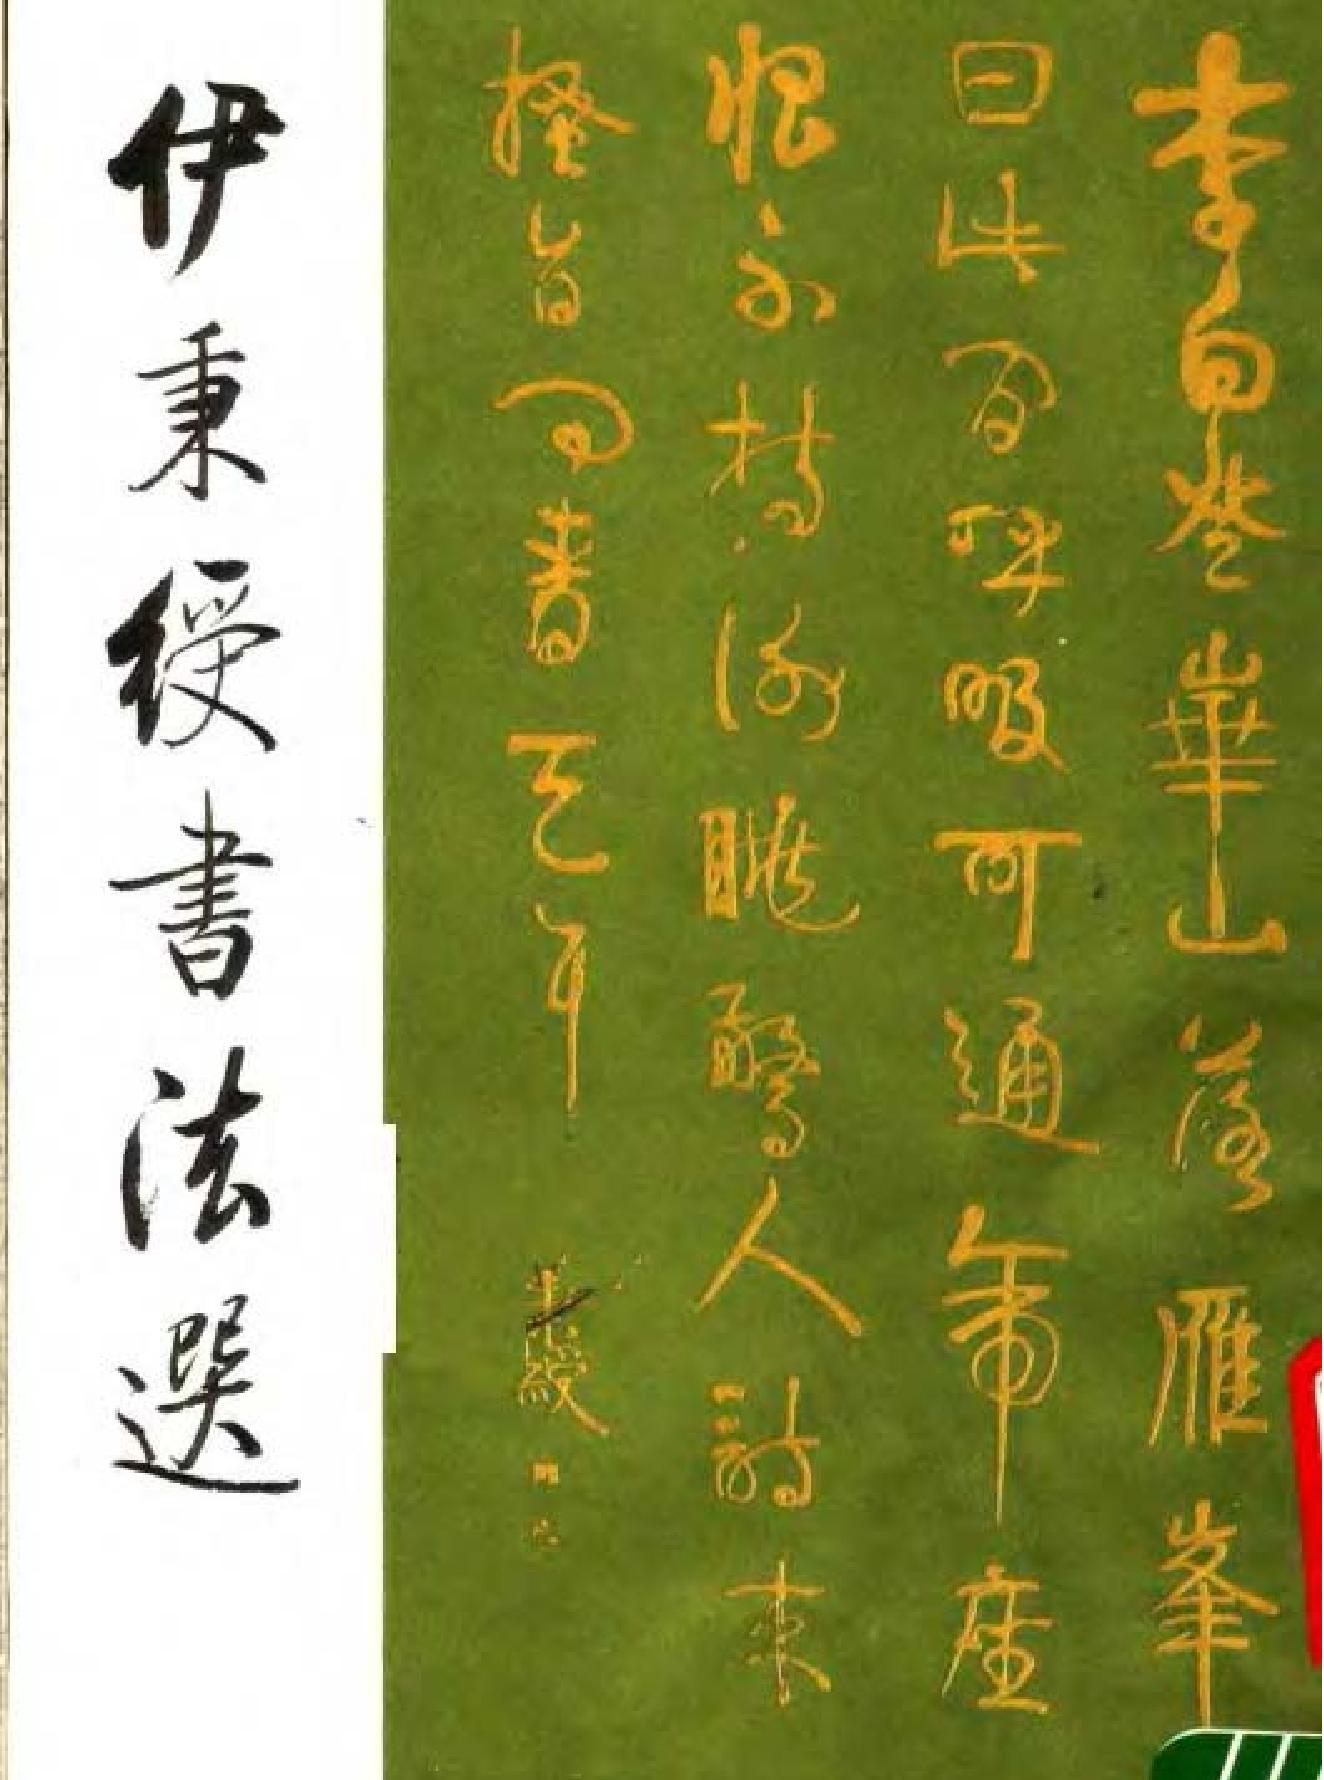 李白登華山落雁峯
曰此間呼吸可通帝座
恨不持謝眺驚人詩來
搔首問青天耳
秉綬
伊秉綬書法選